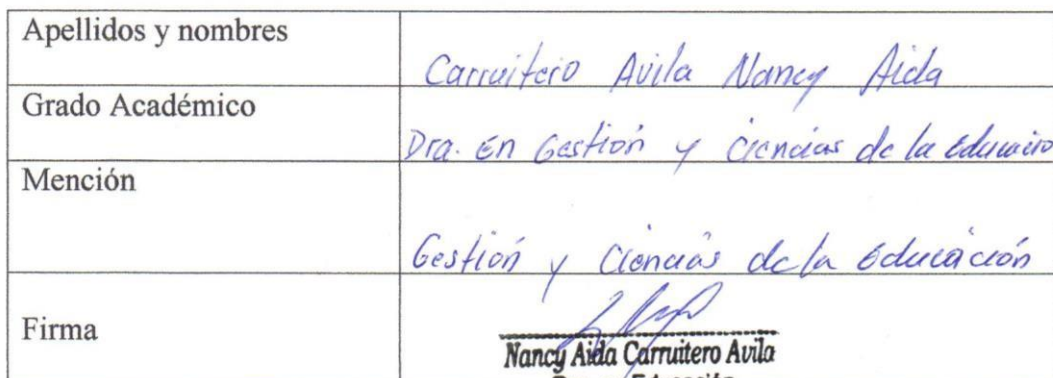 Apellidos y nombres
Carruitero Avila Nancy Aida
Grado Académico
Dra. En Gestión y Ciencias de la Educación
Mención
Gestión y Ciencias de la Educación
Firma
Nancy Aida Carruitero Avila